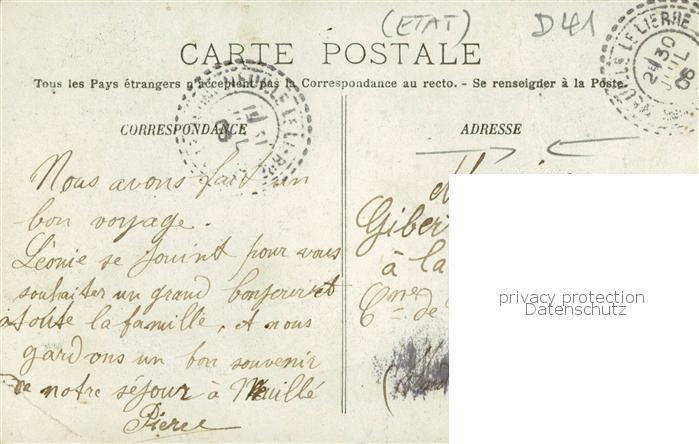 (ETAT) D41
CARTE POSTALE
Tous les Pays étrangers n'acceptent pas la Correspondance au recto. - Se renseigner à la Poste.
LE LIERRE
30
08
LE LIER
CORRESPONDANCE
ADRESSE
Nous avons fait un
bon voyage.
Léonie se jouint pour vous
souhaiter un grand bonjour et
a toute la famille, et nous
gardons un bon souvenir
De notre séjour à Maillé
Pierre
Giber
à la
Cne de
privacy protection
Datenschutz